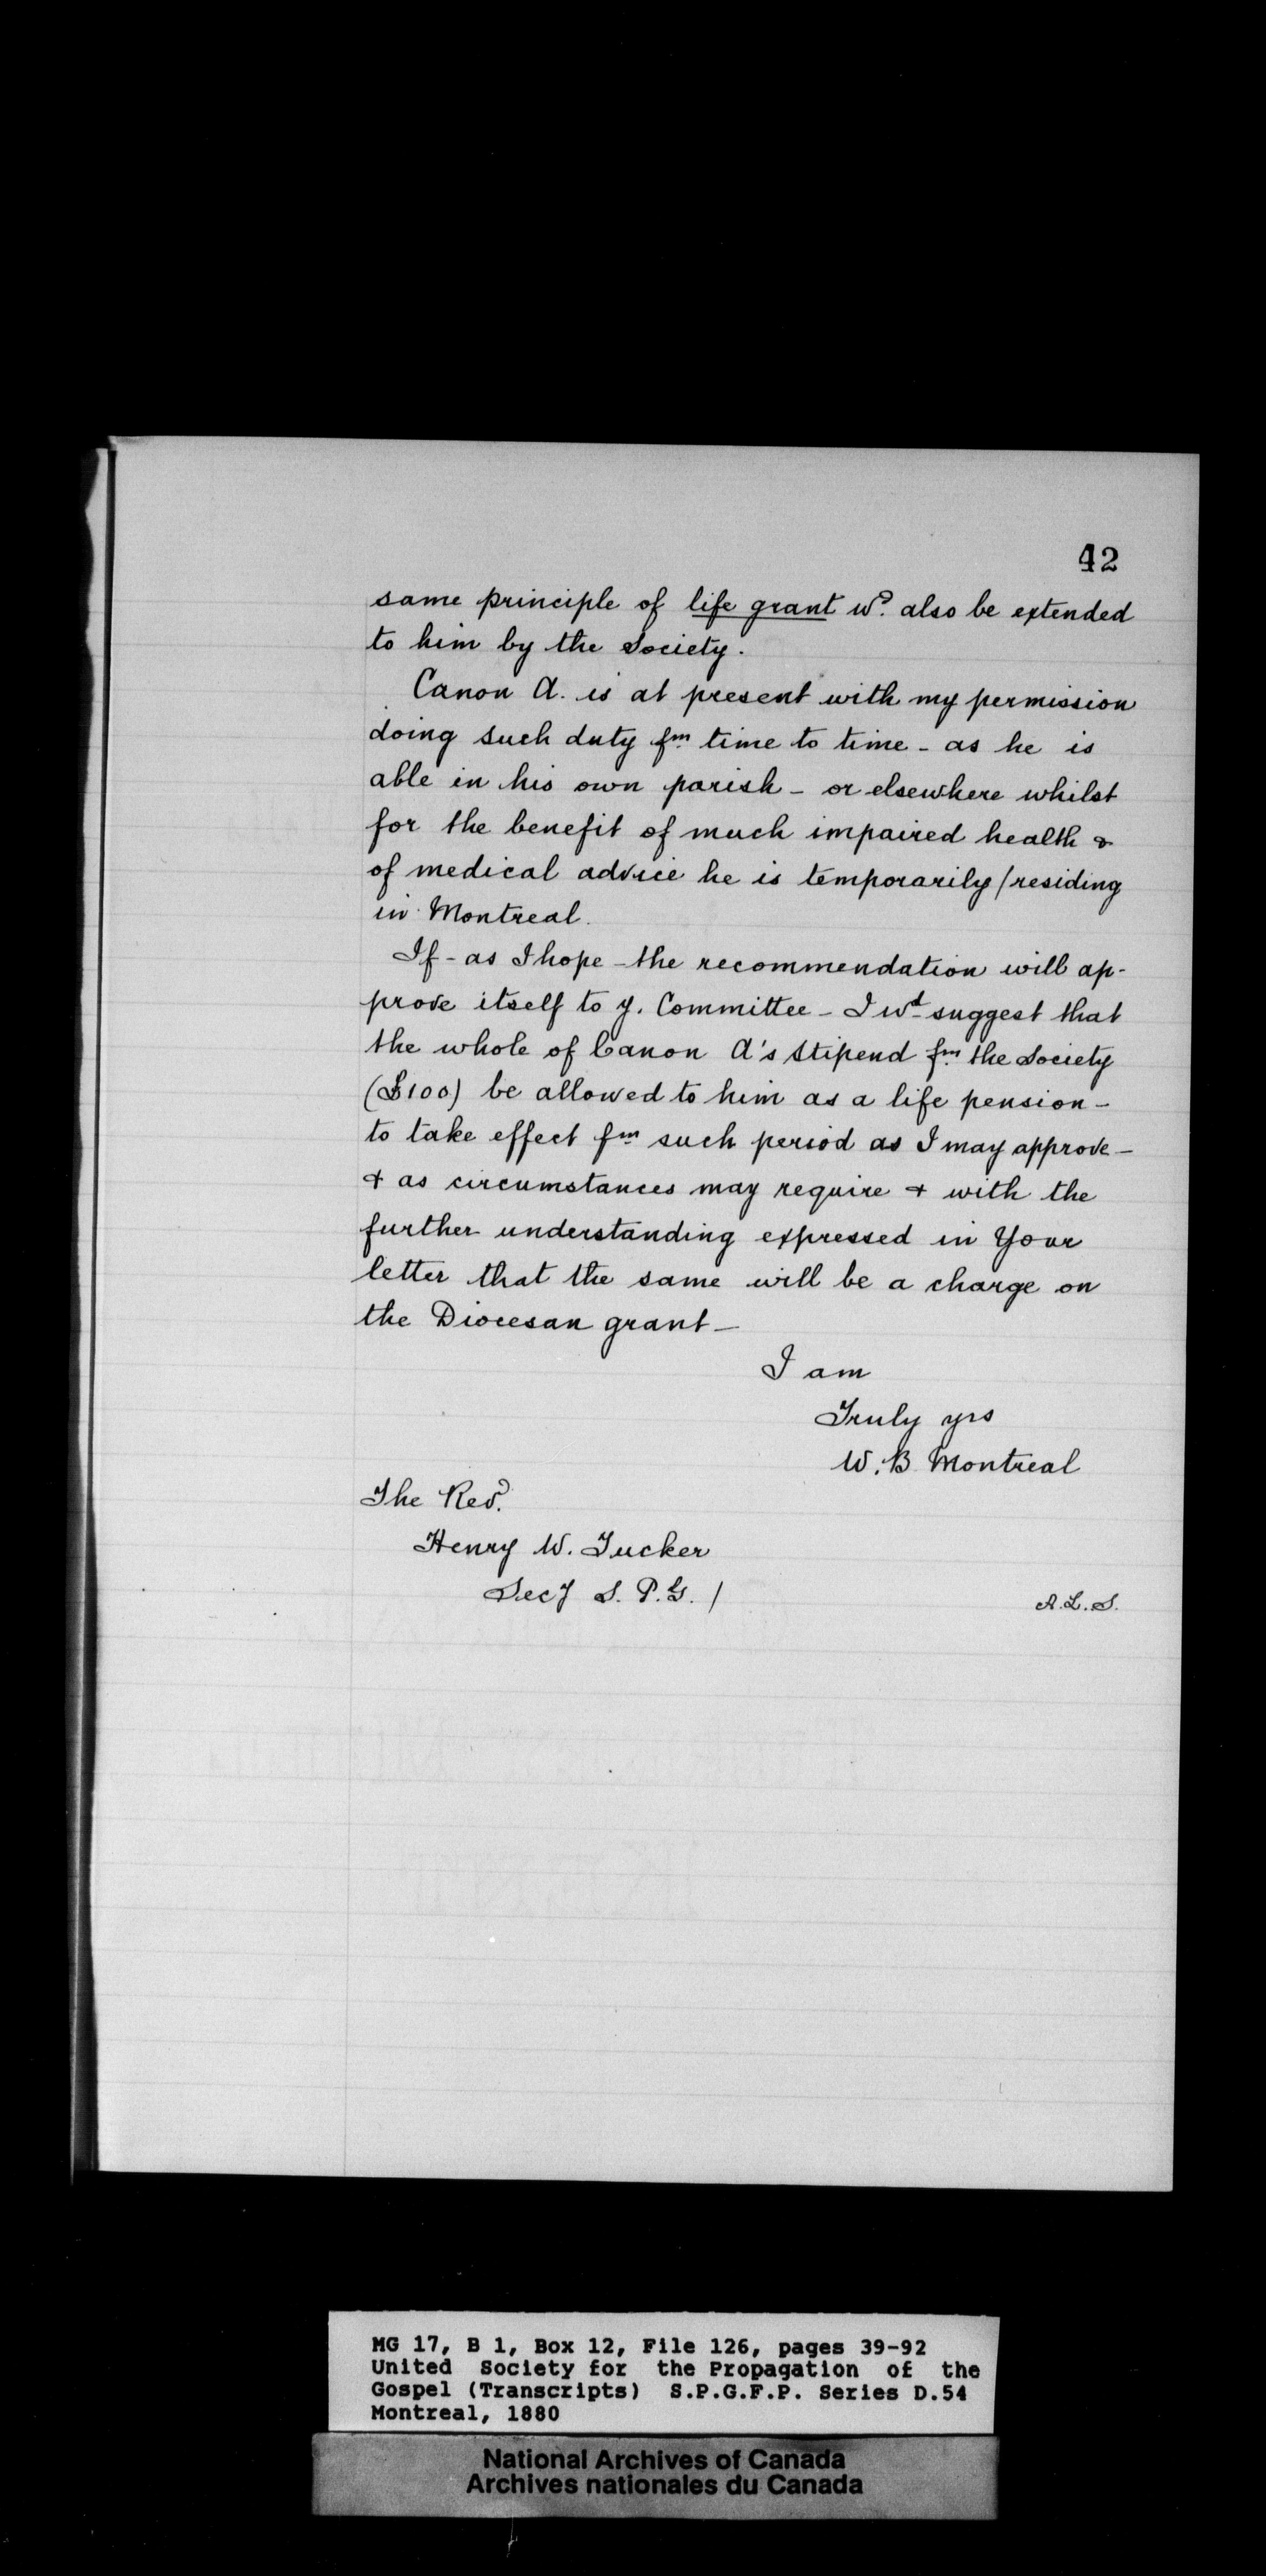 42
same principle of life grant wd. also be extended
to him by the Society.
Canon A. is at present with my permission
doing such duty fm time to time - as he is
able in his own parish - or elsewhere whilst
for the benefit of much impaired health &
of medical advice he is temporarily/residing
in Montreal.
If - as I hope - the recommendation will ap-
prove itself to y. Committee - I wd suggest that
the whole of Canon A's Stipend fm the Society
(£100) be allowed to him as a life pension -
to take effect fm such period as I may approve -
& as circumstances may require & with the
further understanding expressed in Your
letter that the same will be a charge on
the Diocesan grant -
I am
Truly yrs
W. B Montreal
The Revd.
Henry W. Tucker
Secy S. P. G. /
A. L. S.
MG 17, B 1, Box 12, File 126, pages 39-92
United Society for the Propagation of the
Gospel (Transcripts) S.P.G.F.P. Series D.54
Montreal, 1880
National Archives of Canada
Archives nationales du Canada